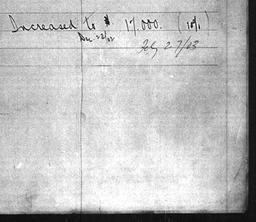 Increased to $ 17,000. (10/1)
Dec 22/02
Feby 27/03